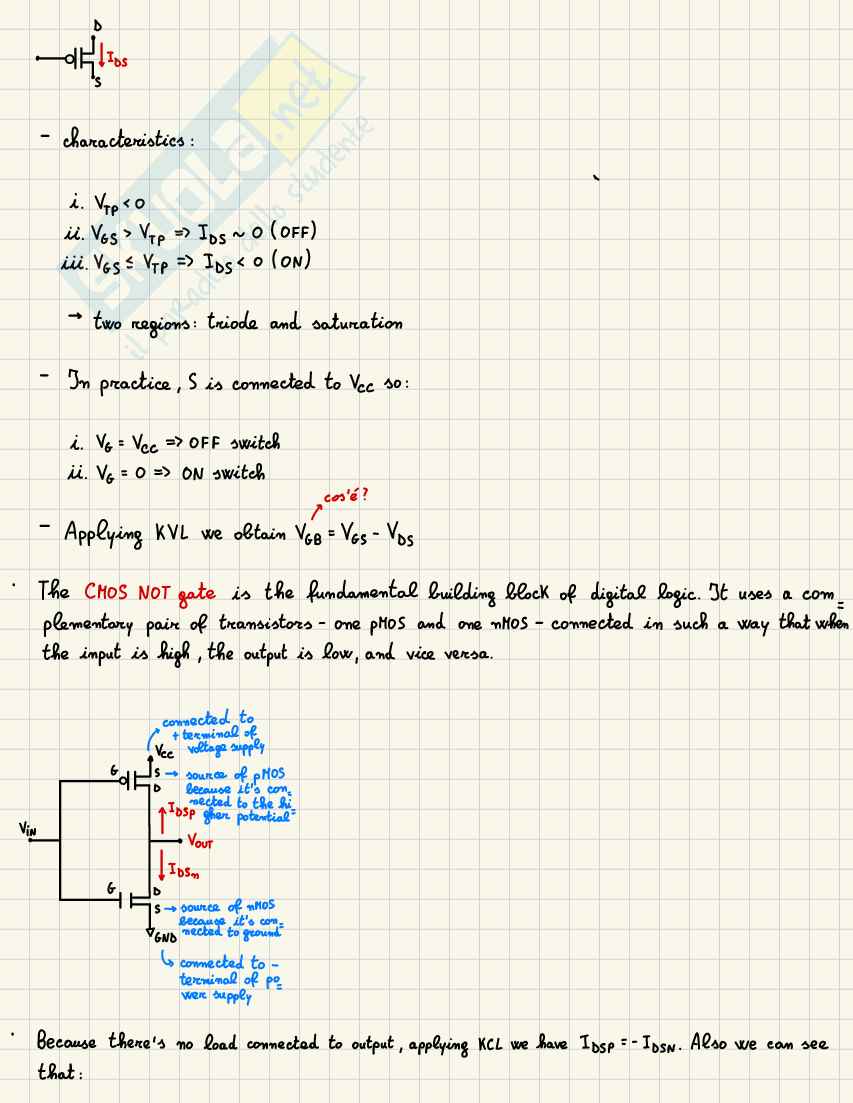 D
I_DS
S
- characteristics:
i. V_TP < 0
ii. V_GS > V_TP => I_DS ~ 0 (OFF)
iii. V_GS ≤ V_TP => I_DS < 0 (ON)
→ two regions: triode and saturation
- In practice, S is connected to V_CC so:
i. V_G = V_CC => OFF switch
ii. V_G = 0 => ON switch
cos'é?
- Applying KVL we obtain V_GB = V_GS - V_DS
· The CMOS NOT gate is the fundamental building block of digital logic. It uses a com=
plementary pair of transistors - one pMOS and one nMOS - connected in such a way that when
the input is high, the output is low, and vice versa.
connected to
+ terminal of
voltage supply
V_CC
G
S → source of pMOS
D
because it's con=
nected to the hi
gher potential=
I_DSp
V_IN
V_OUT
I_DSn
G
D
S → source of nMOS
because it's con=
nected to ground
GND
connected to -
terminal of po=
wer supply
· Because there's no load connected to output, applying KCL we have I_DSP = - I_DSN. Also we can see
that:
SKUOLA.net
il paradiso dello studente